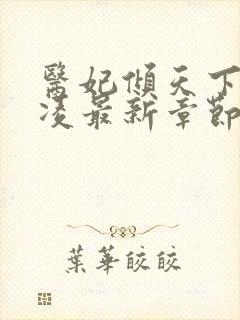 醫妃傾天下
凌最新章節
葉華皎皎